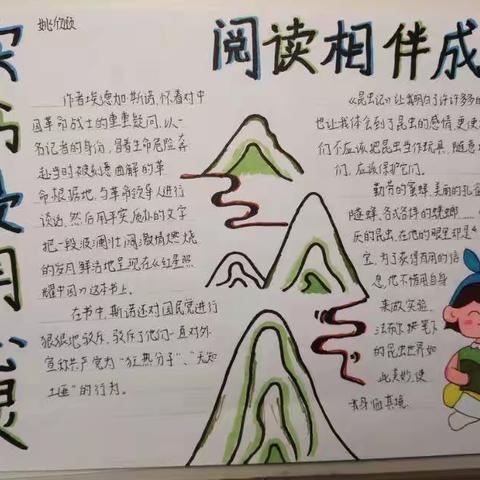 姚
阅读相伴成
作者埃德加·斯诺,怀着对中
国革命战士的重重疑问,以一
名记者的身份,冒着生命危险奔
赴当时被刻意曲解的革
命根据地,与革命领导人进行
谈话,然后用平实质朴的文字
把一段波澜壮阔,激情燃烧
的岁月,鲜活地呈现在《红星照
耀中国》这本书上。
在书中,斯诺还对国民党进行
狠狠地驳斥,驳斥了他们一直对外
宣称共产党为“狂热分子”、“无知
土匪”的行为。
《昆虫记》让我明白了许许多多的
也让我体会到了昆虫的感情,更使
们不应该把昆虫当作玩具,随意
们,应该保护它们。
勤劳的蜜蜂,美丽的孔雀
随蝉,各式各样的螳螂……
厌的昆虫,在他的眼里却是
宝,为了获得有用的信
息,他不惜用自身
来做实验。
法布尔接笔下
的昆虫世界如
此美妙,使
我身临其境